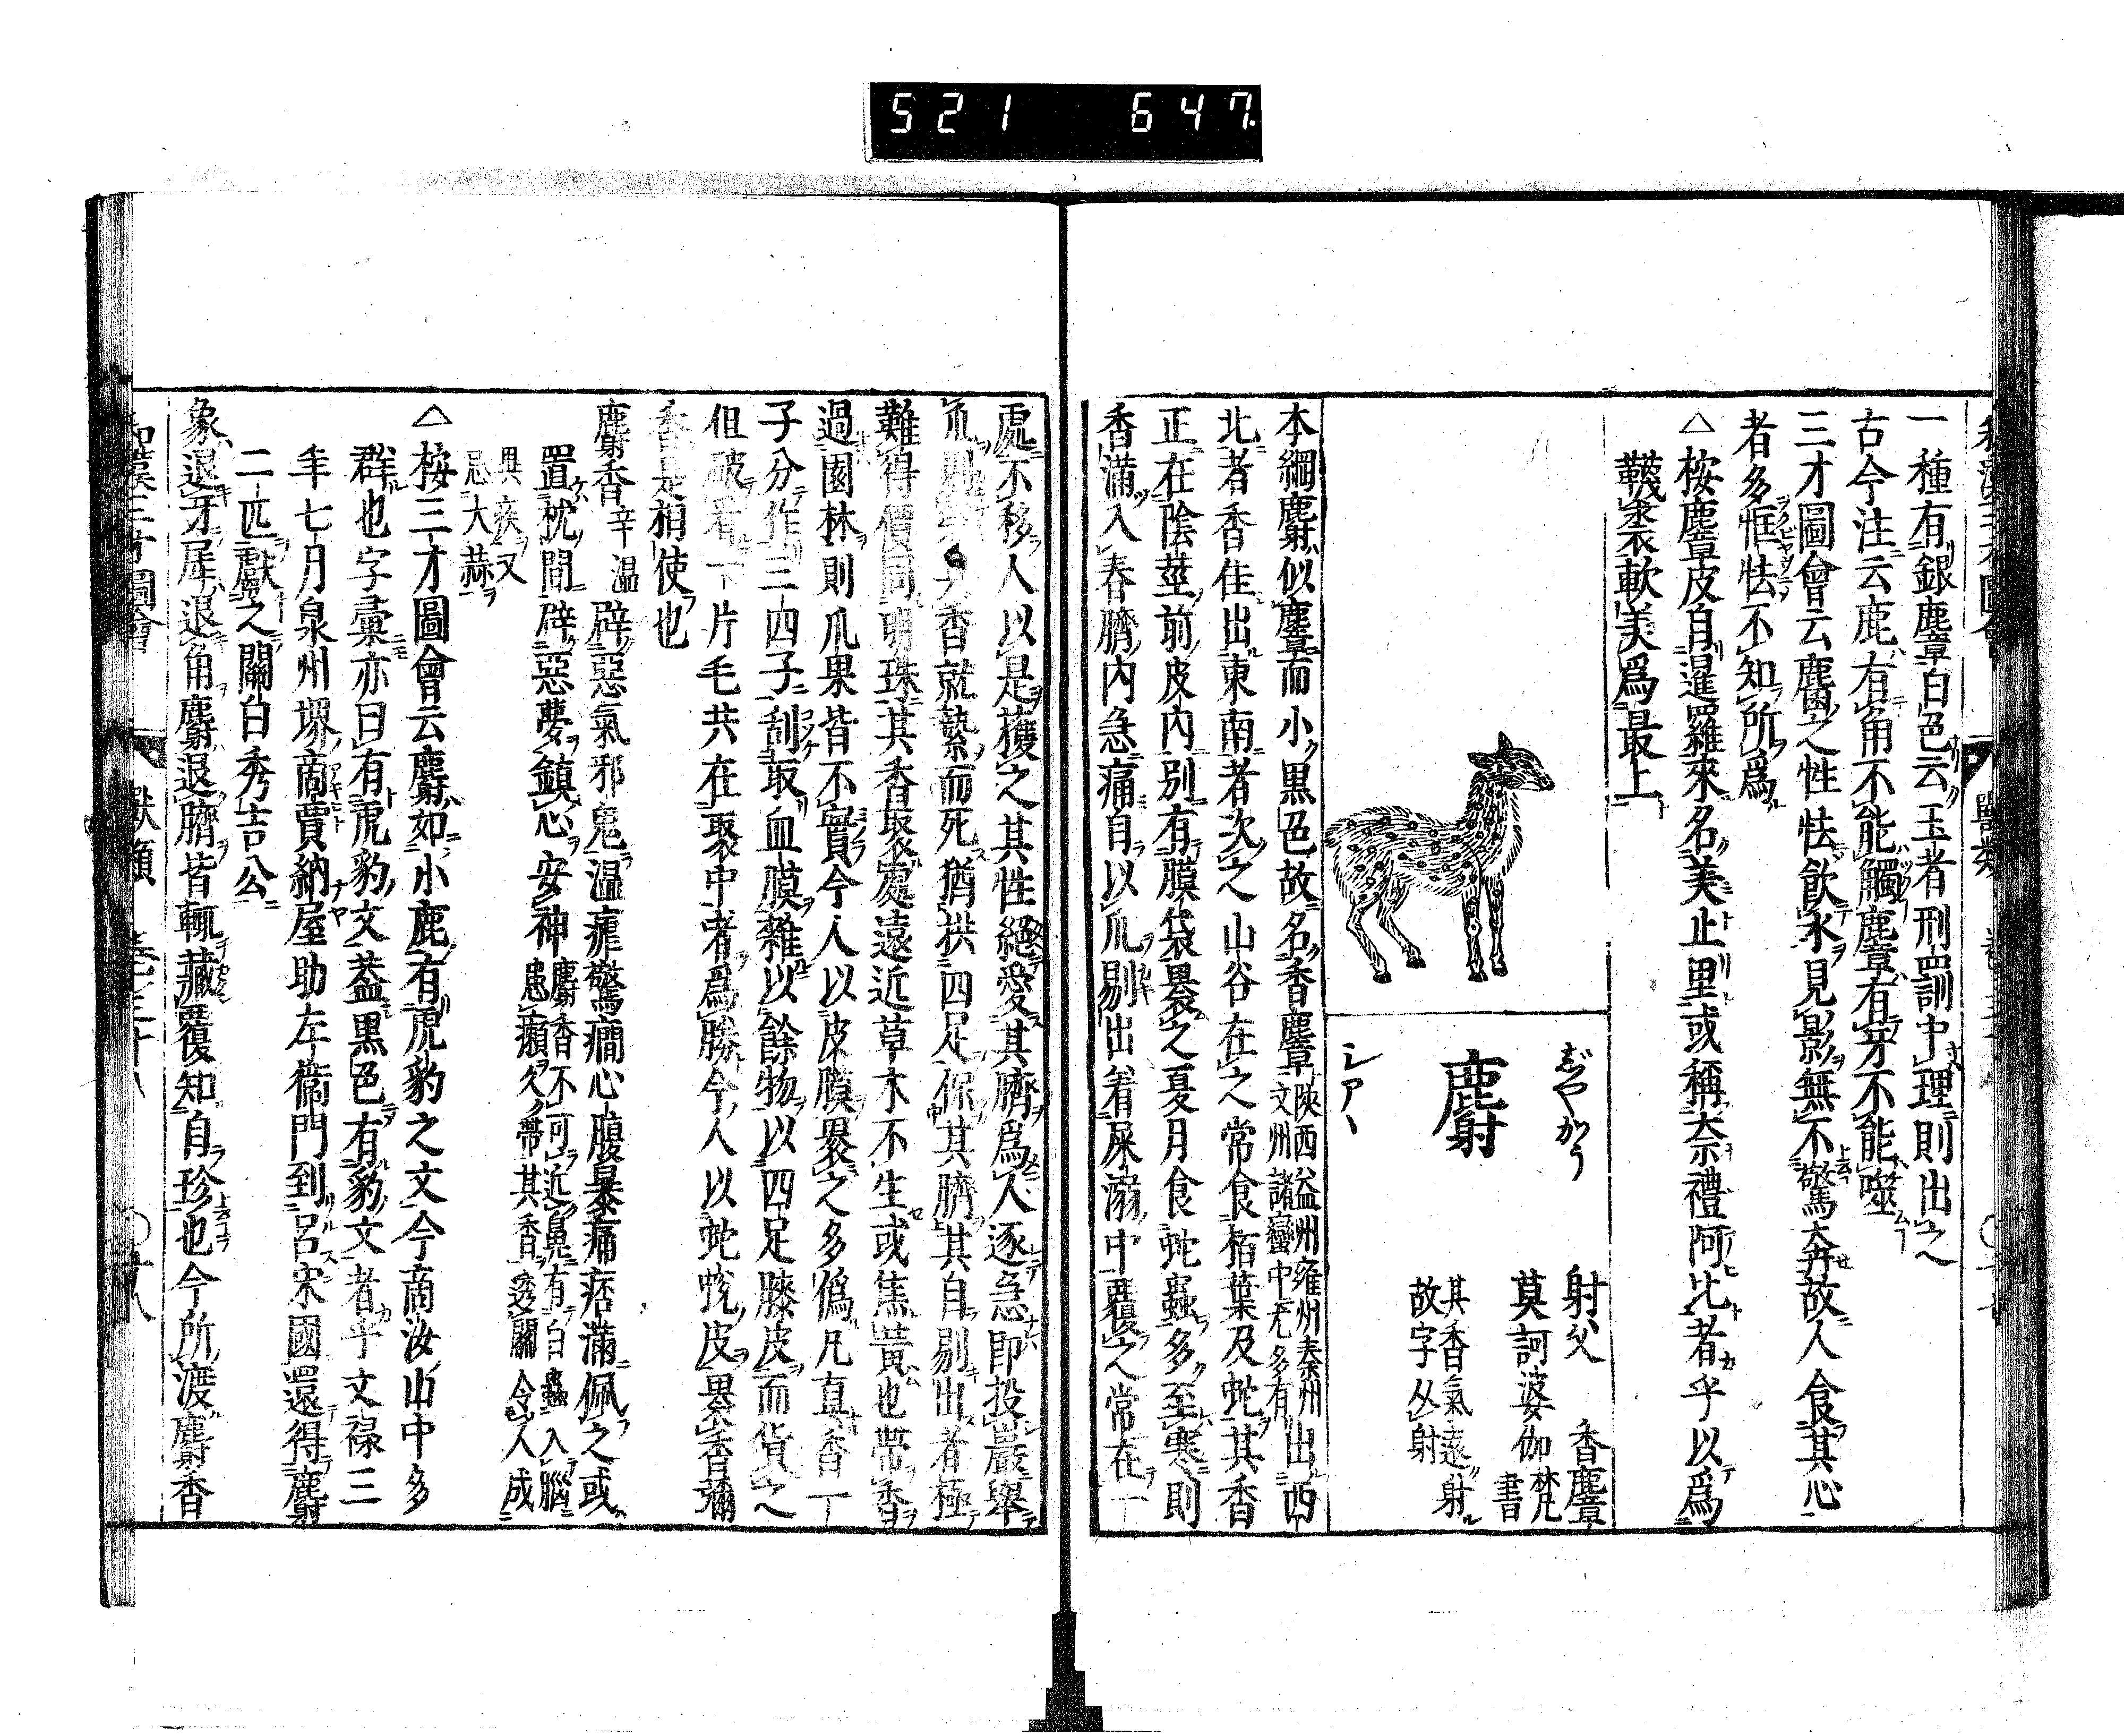 521 647
一種有銀麞白色云王者刑罰中理則出之
古今注云鹿有角不能觸麞有牙不能噬
三才圖會云麕之性怯飮水見影無不驚奔故人食其心
者多恇怯不知所爲
△按麞皮自暹羅來名美止里或稱奈禮阿比者乎以爲
韈裘軟美爲最上
じやかう
麝
シアヽ
射父 香麞
莫訶婆伽 梵書
其香氣遠射
故字从射
本綱麝似麞而小黒色故名香麞 陝西益州雍州秦州
文州諸蠻中尤多有 出西
北者香佳出東南者次之山谷在之常食栢葉及蛇其香
正在陰莖前皮内別有膜袋褁之夏月食蛇蟲多至寒則
香滿入春臍内急痛自以爪剔出着屎溺中覆之常在一
處不移人以是獲之其性絕愛其臍爲人逐急即投巖舉
爪剔 其香就縶而死猶拱四足保其臍其自剔出者極
難得價同明珠其香聚處遠近草木不生或焦黃也帶香
過園林則爪果皆不實今人以皮膜褁之多偽凡真香一
子分作三四子刮取血膜雜以餘物以四足膝皮而貨之
但破看一片毛共在裂中者爲勝今人以蛇蛻皮褁香彌
香是相使也
麝香 辛温 辟惡氣邪鬼温瘧驚癇心腹暴痛痞滿佩之或
置枕間辟惡夢鎮心安神 麝香不可近鼻有白蟲入腦
患癩久帶其香透關令人成
異疾又
忌大蒜
△按三才圖會云麝如小鹿有虎豹之文今商汝山中多
群也字彙亦曰有虎豹文蓋黒色有豹文者乎文禄三
年七月泉州堺商賈納屋助左衞門到呂宋國還得麝
二匹獻之關白秀吉公
象退牙犀退角麝退臍皆輒藏覆知自珍也今所渡麝香